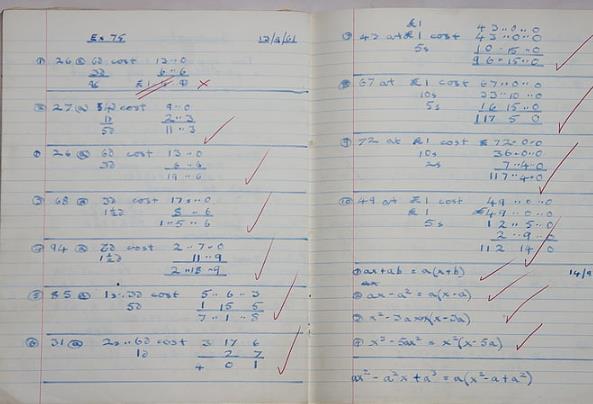 Ex 75 12/9/61
① 26 @ 6d cost 13 .. 0
3d 6 .. 6
② 27 @ cost 9 .. 0
1d 2 .. 3
5d 11 .. 3
26 @ 6d cost 13 .. 0
3d 6 .. 6
19 .. 6
③ 68 @ 3d cost 17 .. 0
1½d 8 .. 6
1 .. 5 .. 6
94 @ cost 2 .. 7 .. 0
1½d 11 .. 9
2 .. 18 .. 9
⑤ 85 @ 1s..3d cost 5 .. 6 .. 3
5d 1 15 5
7 .. 1 .. 8
⑥ 31 @ 2s..6d cost 3 17 6
1d 2 7
4 0 1
£1 43 .. 0 .. 0
43 at £1 cost 43 .. 0 .. 0
5s 10 .. 15 .. 0
96 .. 15 .. 0
⑧ 67 at £1 cost 67 .. 0 .. 0
10s 33 .. 10 .. 0
5s 16 15 .. 0
117 5 0
⑨ 72 at £1 cost £72 .. 0 .. 0
10s 36 .. 0 .. 0
2s 7 .. 4 .. 0
117 .. 4 .. 0
⑩ 49 at £1 cost 49 .. 0 .. 0
£1 49 .. 0 .. 0
5s 12 .. 5 .. 0
2 .. 9 .. 0
112 14 0
① ax+ab = a(x+b) 14/9
② ax - a² = a(x-a)
x² - 3ax x(x-3a)
④ x³ - 5ax² = x²(x-5a)
ax² - a²x + a³ = a(x² - ax + a²)